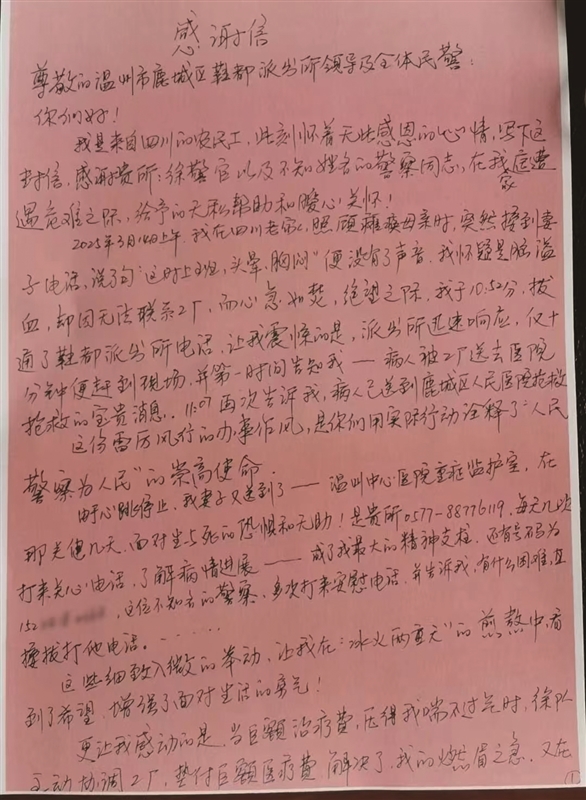 感谢信
尊敬的温州市鹿城区鞋都派出所领导及全体民警：
你们好！
我是来自四川的农民工，此刻怀着无比感恩的心情，写下这
封信，感谢贵所：徐警官以及不知姓名的警察同志，在我家遭
遇危难之际，给予的无私帮助和暖心关怀！
2025年3月14日上午，我在四川老家，照顾瘫痪母亲时，突然接到妻
子电话，说了句"这时上班，头晕，胸闷"便没有了声音，我怀疑是脑溢
血，却因无法联系工厂，而心急如焚，绝望之际，我于10:52分，拔
通了鞋都派出所电话，让我震惊的是，派出所迅速响应，仅十
分钟便赶到现场，并第一时间告知我——病人被工厂送去医院
抢救的宝贵消息，11:07再次告诉我，病人已送到鹿城区人民医院抢救
这份雷厉风行的办事作风，是你们用实际行动诠释了"人民
警察为人民"的崇高使命.
由于心跳停止，我妻子又送到了——温州中心医院重症监护室，在
那关键几天，面对生与死的恐惧和无助！是贵所0577-88776119，每天几次
打来关心电话，了解病情进展——成了我最大的精神支柱，还有号码为
152 ，这位不知名的警察，多次打来安慰电话，并告诉我，有什么困难，直
接拔打他电话。......
这些细致入微的举动，让我在："冰火两重天"的煎熬中，看
到了希望，增强了面对生活的勇气！
更让我感动的是，当巨额治疗费，压得我喘不过气时，徐队
主动协调工厂，垫付巨额医疗费，解决了，我的燃眉之急，又在